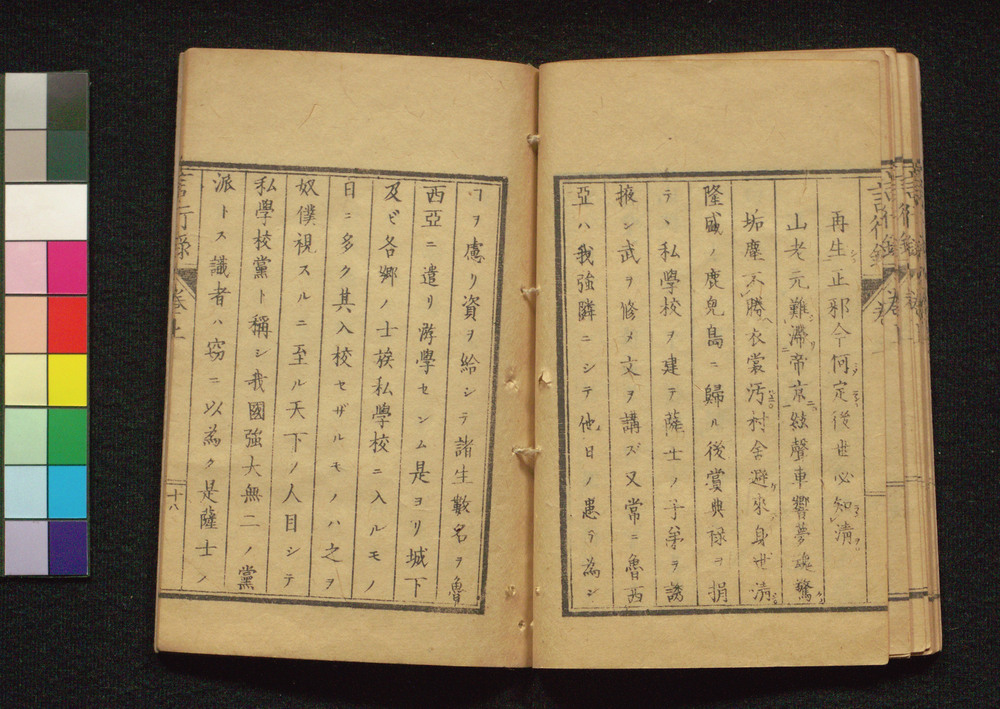 再生止邪今何定後世必知清
山老元難滞帝京絃聲車響夢魂驚
垢塵不勝衣裳汚村舎避來身世清
隆盛ノ鹿兒島ニ歸ル後賞典禄ヲ捐
テ、私學校ヲ建テ薩士ノ子弟ヲ誘
掖シ武ヲ修メ文ヲ講ズ又常ニ魯西
亞ハ我強隣ニシテ他日ノ患ヲ為シ
ヿヲ慮リ資ヲ給シテ諸生數名ヲ魯
西亞ニ遣リ游學セシム是ヨリ城下
及ビ各郷ノ士族私學校ニ入ルモノ
日ニ多ク其入校セザルモノハ之ヲ
奴僕視スルニ至ル天下ノ人目シテ
私學校黨ト稱シ我國強大無二ノ黨
派トス識者ハ窃ニ以為ク是薩士ノ
言行録 卷上
十八